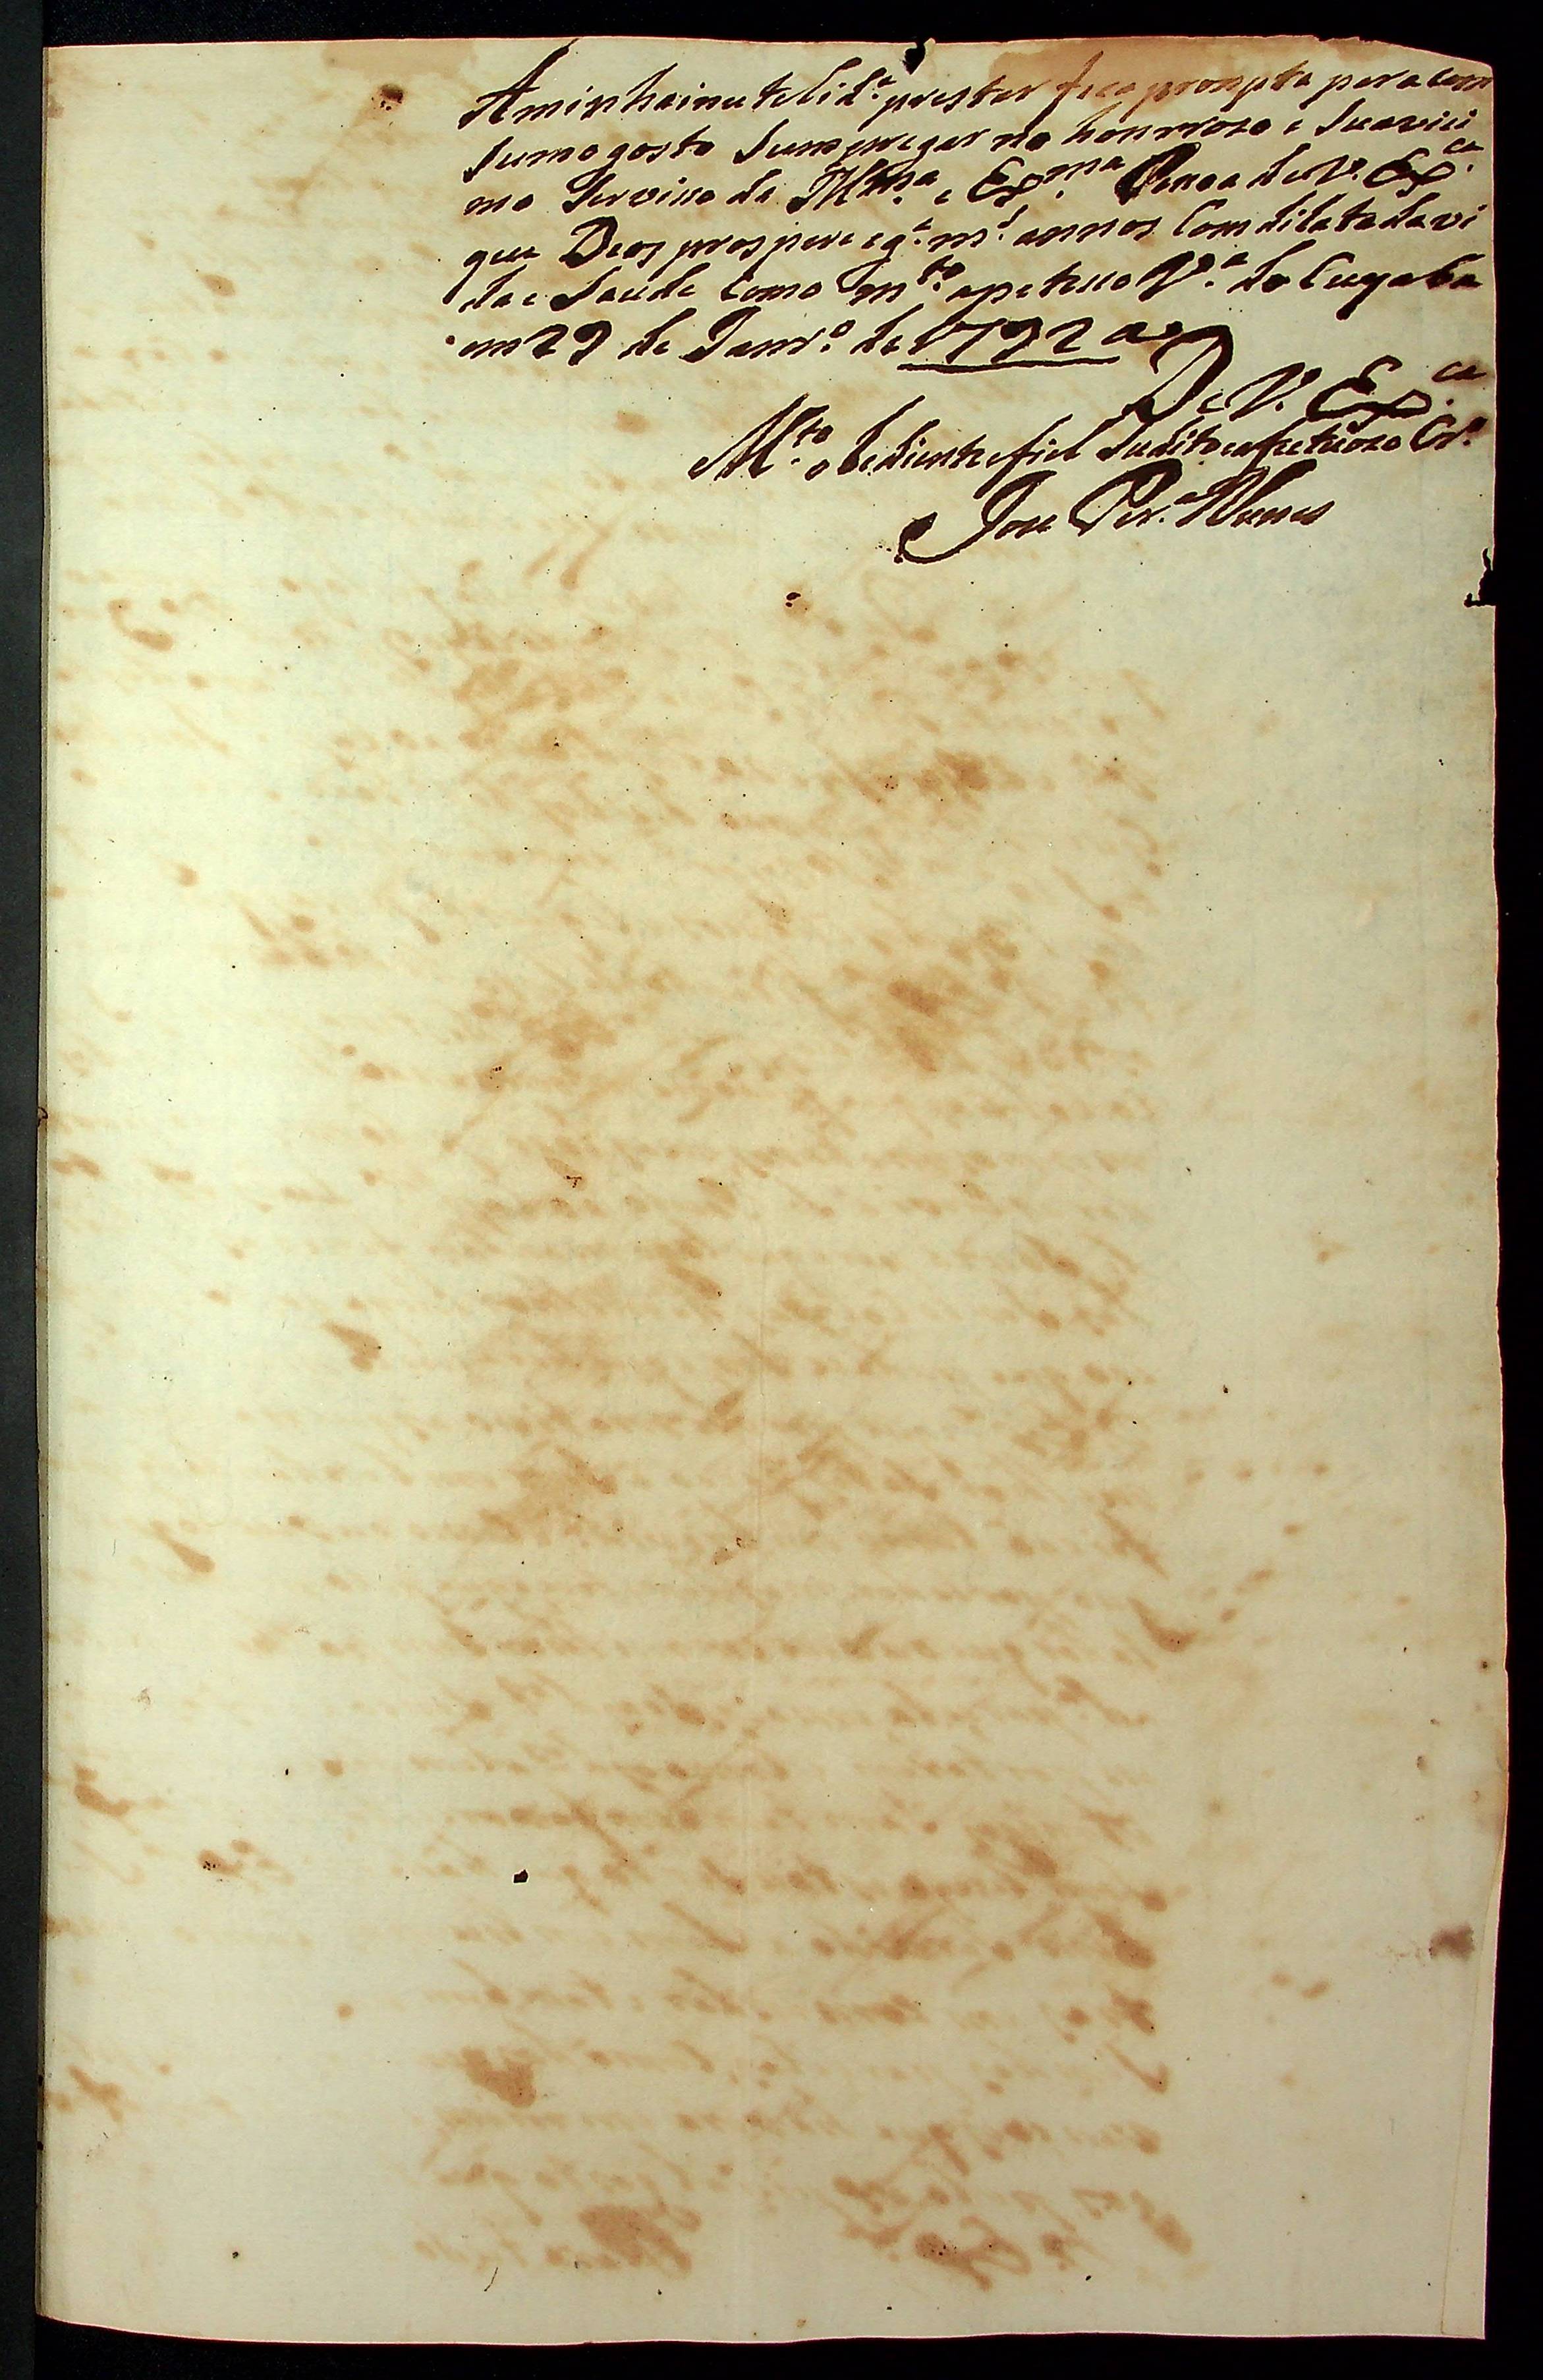 Aminhainutelid.e prestes fica prompta pera com
sumo gosto Seempregar no honrrozo e Suavici
mo Servisso da Ill.ma e Ex.ma Pesoa de V. Ex.ca
que Deos prospere e g.e m.s annos Com dilatada vi
da e Saude Como m.to apetesso V.a do Cuyaba
em 29 de Janr.o de 1792 a
De V. Ex.ca
M.to obediente e fiel Sudito e afectuozo Cr.o
Joze Per.a Nunes